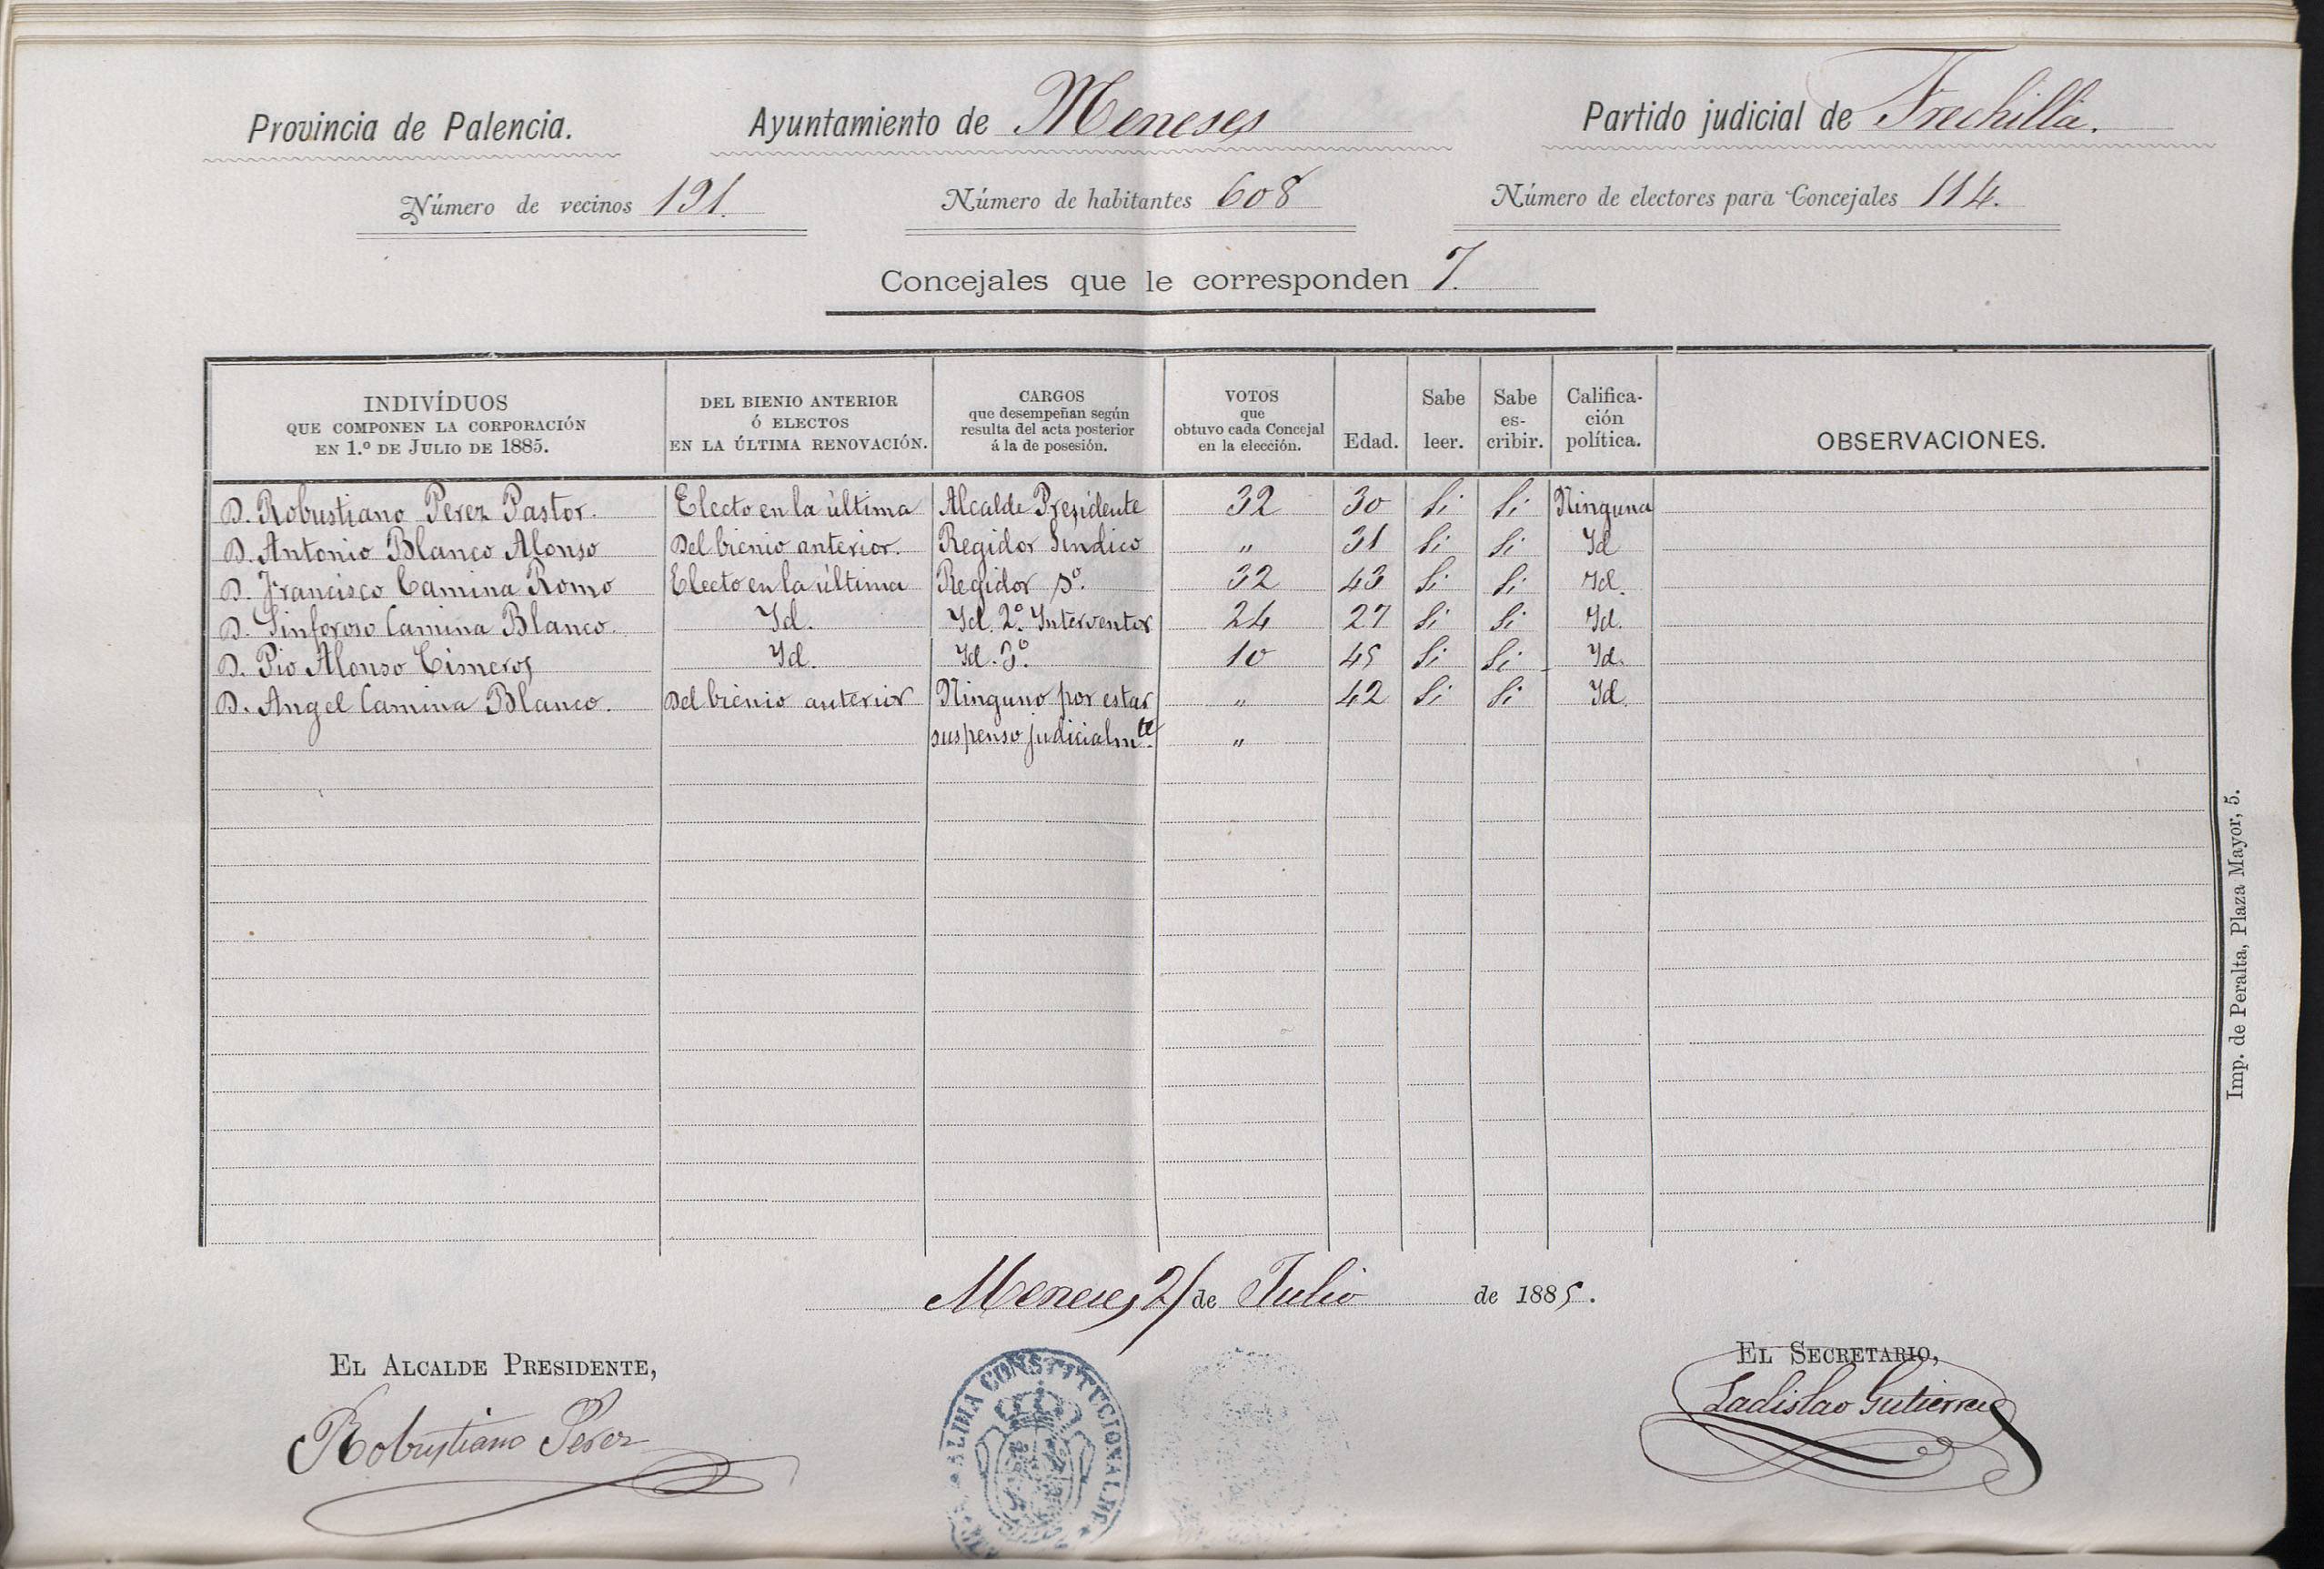 Provincia de Palencia. Ayuntamiento de Meneses Partido judicial de Frechilla.
Número de vecinos 191. Número de habitantes 608 Número de electores para Concejales 114.
Concejales que le corresponden 7.
INDIVÍDUOS QUE COMPONEN LA CORPORACIÓN EN 1.º DE JULIO DE 1885. DEL BIENIO ANTERIOR Ó ELECTOS EN LA ÚLTIMA RENOVACIÓN. CARGOS que desempeñan según resulta del acta posterior á la de posesión. VOTOS que obtuvo cada Concejal en la elección. Edad. Sabe leer. Sabe es-cribir. Califica-ción política. OBSERVACIONES.
D. Robustiano Perez Pastor. Electo en la última Alcalde Presidente 32 30 Si Si Ninguna
D. Antonio Blanco Alonso Del bienio anterior. Regidor Sindico " 31 Si Si Id
D. Francisco Camina Romo Electo en la última Regidor 1º. 32 43 Si Si Id.
D. Sinforoso Camina Blanco. Id. Id. 2º. Interventor 24 27 Si Si Id.
D. Pio Alonso Cisneros Id. Id. 3º. 10 45 Si Si Id.
D. Angel Camina Blanco. Del bienio anterior Ninguno por estar " 42 Si Si Id.
suspenso judicialmte. "
Meneses 21 de Julio de 1885.
EL ALCALDE PRESIDENTE, EL SECRETARIO,
Robustiano Perez Ladislao Gutierrez
CONSTITUCIONAL
Imp. de Peralta, Plaza Mayor, 5.